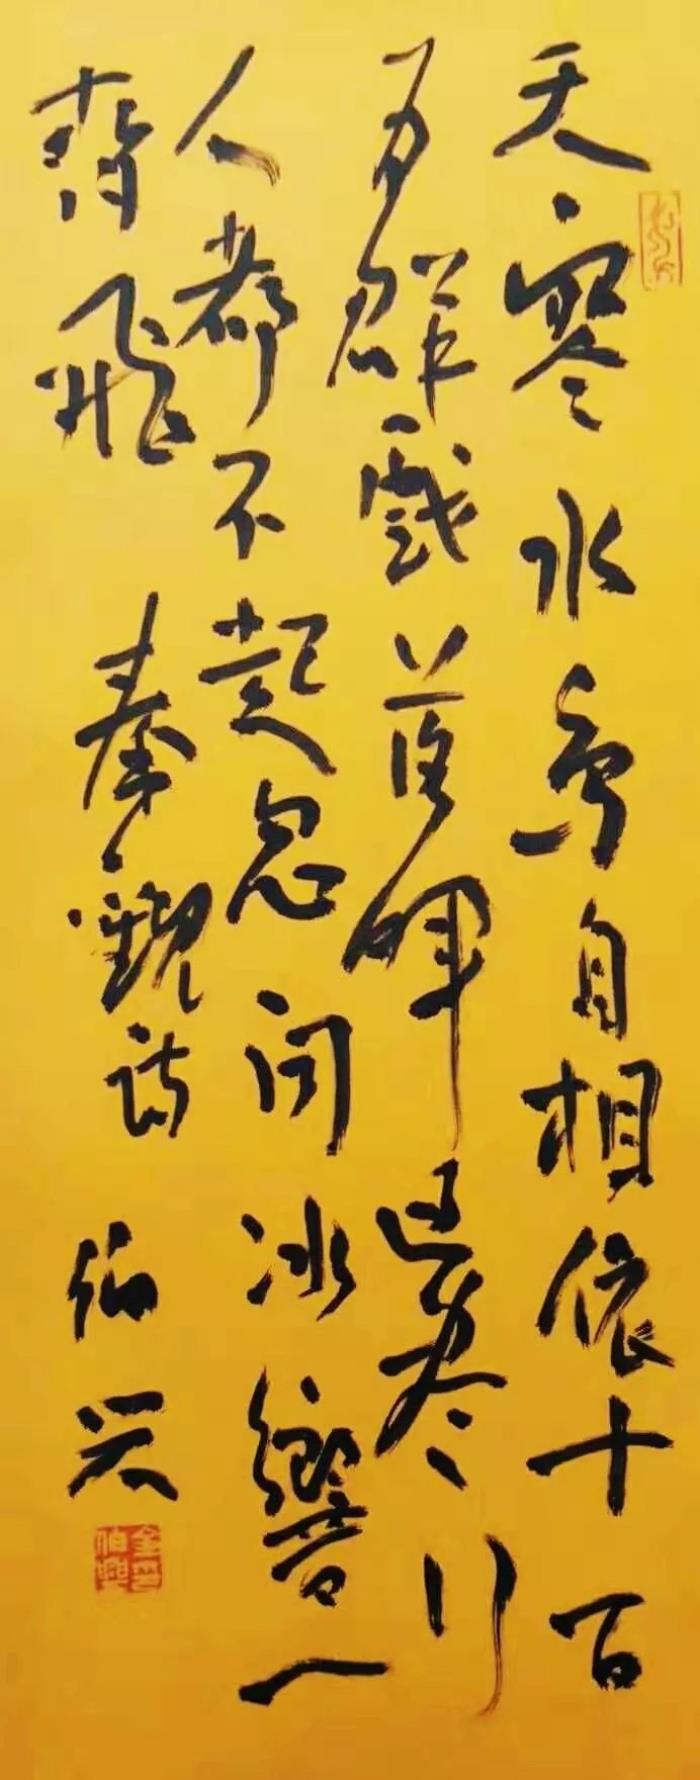 天寒水鸟自相依十百
为群戏落晖过尽行
人都不起忽闻冰響一
齊飛 秦觀诗 伯兴